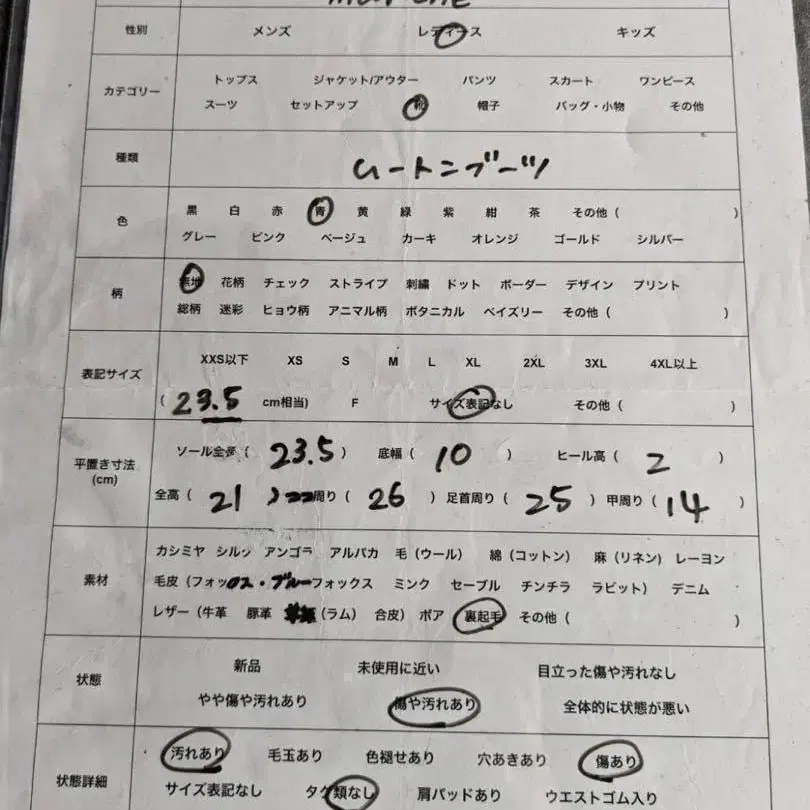 性別 メンズ レディース キッズ
カテゴリー トップス ジャケット/アウター パンツ スカート ワンピース
スーツ セットアップ 靴 帽子 バッグ・小物 その他
種類 ムートンブーツ
色 黒 白 赤 青 黄 緑 紫 紺 茶 その他 ( )
グレー ピンク ベージュ カーキ オレンジ ゴールド シルバー
柄 無地 花柄 チェック ストライプ 刺繍 ドット ボーダー デザイン プリント
総柄 迷彩 ヒョウ柄 アニマル柄 ボタニカル ペイズリー その他 ( )
表記サイズ XXS以下 XS S M L XL 2XL 3XL 4XL以上
( 23.5 cm相当) F サイズ表記なし その他 ( )
平置き寸法 (cm) ソール全長 ( 23.5 ) 底幅 ( 10 ) ヒール高 ( 2 )
全高 ( 21 ) 周り ( 26 ) 足首周り ( 25 ) 甲周り ( 14 )
素材 カシミヤ シルク アンゴラ アルパカ 毛 (ウール) 綿 (コットン) 麻 (リネン) レーヨン
毛皮 (フォックス・ブルーフォックス ミンク セーブル チンチラ ラビット) デニム
レザー (牛革 豚革 (ラム) 合皮) ボア 裏起毛 その他 ( )
状態 新品 未使用に近い 目立った傷や汚れなし
やや傷や汚れあり 傷や汚れあり 全体的に状態が悪い
状態詳細 汚れあり 毛玉あり 色褪せあり 穴あきあり 傷あり
サイズ表記なし タグ類なし 肩パッドあり ウエストゴム入り